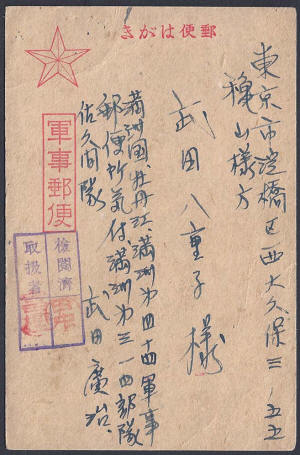 郵便はがき
東京市淀橋区西大久保三ノ五五
種山様方
武田八重子様
軍事郵便
満洲国牡丹江、満洲第四十四軍事
郵便所気付満洲第三一四部隊
佐久間隊
武田廣治
検閲済
取扱者